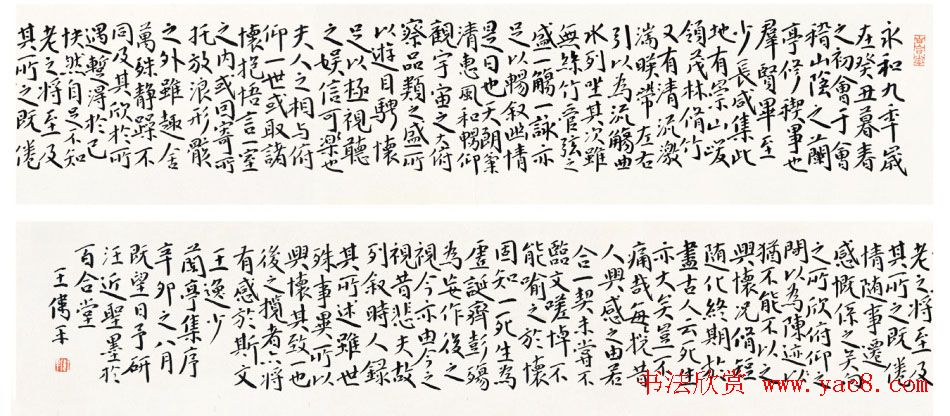 永和九年歲
在癸丑暮春
之初會于會
稽山陰之蘭
亭修禊事也
羣賢畢至
少長咸集此
地有崇山峻
領茂林脩竹
又有清流激
湍暎帶左右
引以為流觴曲
水列坐其次雖
無絲竹管弦之
盛一觴一詠亦
足以暢叙幽情
是日也天朗氣
清惠風和暢仰
觀宇宙之大俯
察品類之盛所
以遊目騁懷
足以極視聽
之娛信可樂也
夫人之相與俯
仰一世或取諸
懷抱悟言一室
之內或因寄所
托放浪形骸
之外雖趣舍
萬殊静躁不
同及其欣於所
遇暫得於己
怏然自足不知
老之將至及
其所之既倦
老之將至及
其所之既倦
情随事遷
感慨係之矣向
之所欣俯仰之
閒以為陳迹
猶不能不以之
興懷況脩短
随化終期於
盡古人云死生
亦大矣豈不
痛哉每攬昔
人興感之由若
合一契未嘗不
臨文嗟悼不
能喻之於懷
固知一死生為
虛誕齊彭殤
為妄作後之
視今亦由今之
視昔悲夫故
列叙時人錄
其所述雖世
殊事異所以
興懷其致也
後之攬者亦將
有感於斯文
王逸少
蘭亭集序
辛卯之八月
既望日予研
汪近聖墨於
百合堂
王
书法欣赏 www.yac8.com